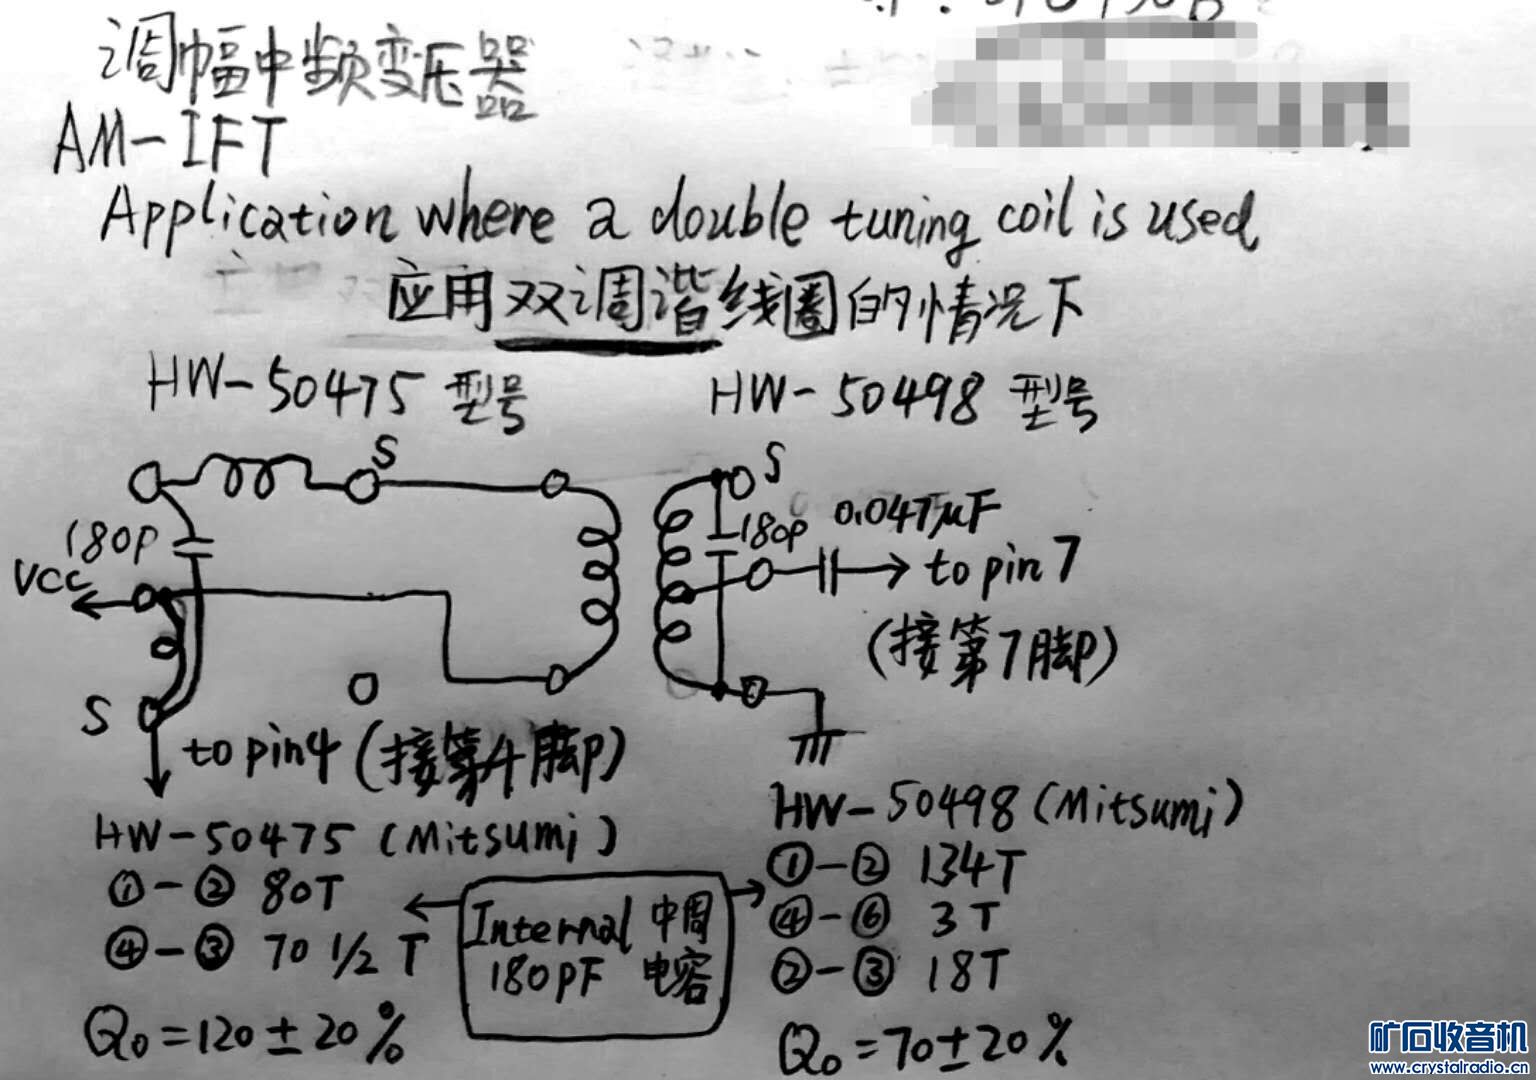 调幅中频变压器
AM-IFT
Application where a double tuning coil is used
应用双调谐线圈的情况下
HW-50475 型号 HW-50498 型号
S S
180P 180P 0.047μF
VCC to pin 7
(接第7脚)
S
to pin4 (接第4脚)
HW-50475 (Mitsumi) HW-50498 (Mitsumi)
①-② 80T ①-② 134T
④-③ 70 1/2 T Internal 中周 ④-⑥ 3T
180PF 电容 ②-③ 18T
Qo=120±20% Qo=70±20%
矿石收音机
www.crystalradio.cn